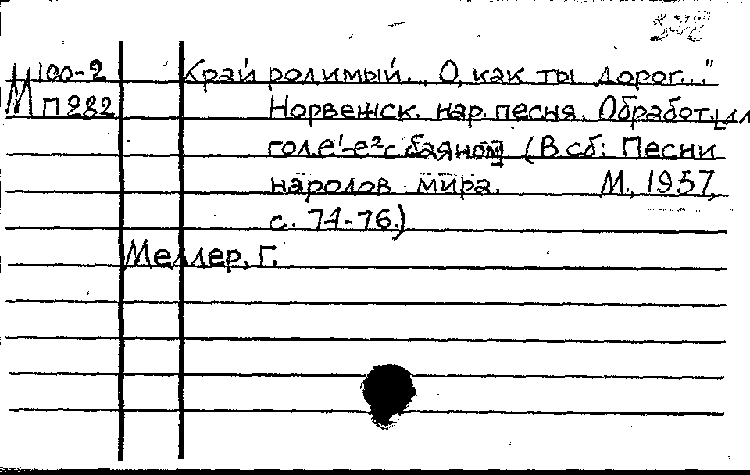 М 100-2 Край родимый... О, как ты дорог..."
П 282 Норвежск. нар. песня. Обработ. дл
гол е¹-е² с баяном (В сб: Песни
народов мира. М., 1957,
с. 74-76.)
Меллер, Г.